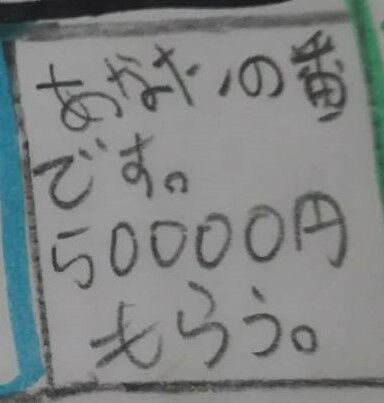 あなたの番
です。
50000円
もらう。